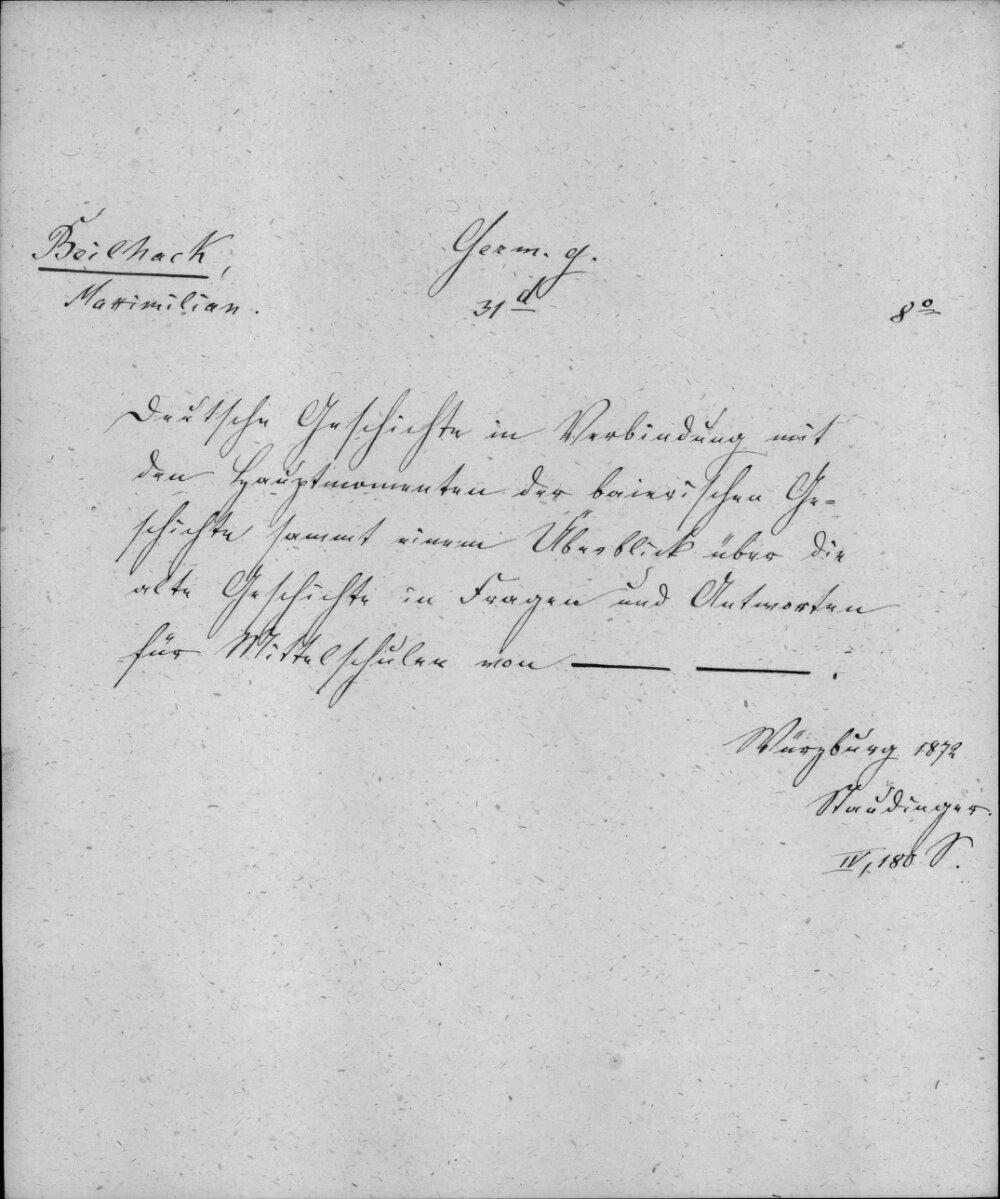 Beilhack,
Maximilian.
Germ. g.
31 d
8o
Deutsche Geschichte in Verbindung mit
den Hauptmomenten der baierischen Ge-
schichte sammt einem Überblick über die
alte Geschichte in Fragen und Antworten
für Mittelschulen von — — .
Würzburg 1872
Staudinger.
IV, 180 S.